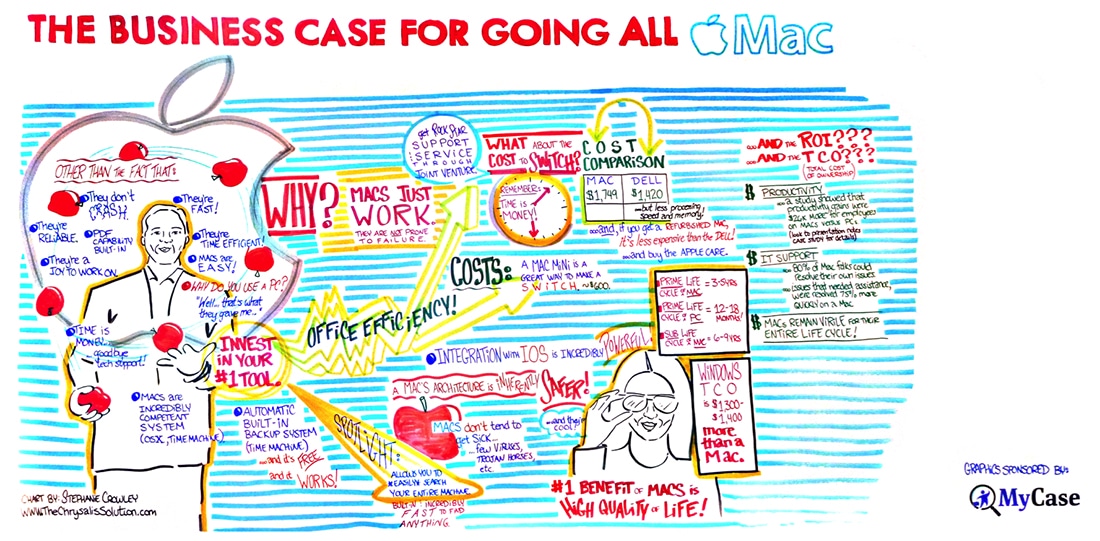 THE BUSINESS CASE FOR GOING ALL Mac
OTHER THAN THE FACT THAT:
They don't
CRASH.
They're
FAST!
They're
RELIABLE.
PDF
CAPABILITY
BUILT-IN
They're
TIME EFFICIENT!
They're A
JOY TO WORK ON.
MACS ARE
EASY!
WHY DO YOU USE A PC?
"Well... that's what
they gave me..."
TIME IS
MONEY...
goodbye
tech support!
INVEST
IN YOUR
#1 TOOL.
MACS ARE
INCREDIBLY
COMPETENT
SYSTEM
(OSX, TIME MACHINE)
CHART BY: STEPHANE CROWLEY
WWW.THECHRYSALISSOLUTION.COM
WHY?
MACS JUST
WORK.
THEY ARE NOT PRONE
TO FAILURE.
get ROCK STAR
SUPPORT
& SERVICE
THROUGH
JOINT VENTURE.
WHAT ABOUT THE
COST TO SWITCH?
REMEMBER:
TIME IS
MONEY!
COST
COMPARISON
MAC DELL
$1,749 $1,420
...but less processing
speed and memory!
...and, if you get a REFURBISHED MAC,
IT'S less expensive than the DELL!
...and buy the APPLE CARE.
OFFICE EFFICIENCY!
COSTS:
A MAC MINI is A
GREAT WAY TO MAKE A
SWITCH. ~$600.
INTEGRATION WITH IOS IS INCREDIBLY POWERFUL!
A MAC'S ARCHITECTURE IS INHERENTLY SAFER!
MACS don't tend to
get SICK...
...few VIRUSES,
TROJAN HORSES,
etc.
...and they're
COOL!
AUTOMATIC
BUILT-IN
BACKUP SYSTEM
(TIME MACHINE)
...and it's FREE
and it WORKS!
SPOTLIGHT:
ALLOWS YOU TO
EASILY SEARCH
YOUR ENTIRE MACHINE.
BUILT-IN & INCREDIBLY
FAST TO FIND
ANYTHING.
#1 BENEFIT OF MACS is
HIGH QUALITY OF LIFE!
PRIME LIFE
CYCLE of MAC = 3-5 YRS
PRIME LIFE
CYCLE of PC = 12-18
MONTHS!
SUB LIFE
CYCLE of MAC = 6-9 YRS
WINDOWS
TCO
is $1,300-
$1,400
more
than a
Mac.
...AND THE ROI???
...AND THE TCO???
(TOTAL COST
OF OWNERSHIP)
PRODUCTIVITY
...a study showed that
productivity gains were
MORE for employees
on MACS versus PC's
(look to presentation notes
CASE STUDY for details)
IT SUPPORT
...80% of Mac folks could
resolve their own issues
...issues that needed assistance,
were resolved 75% more
QUICKLY on a Mac
MACS REMAIN VIRILE FOR THEIR
ENTIRE LIFE CYCLE!
GRAPHICS SPONSORED BY:
MyCase